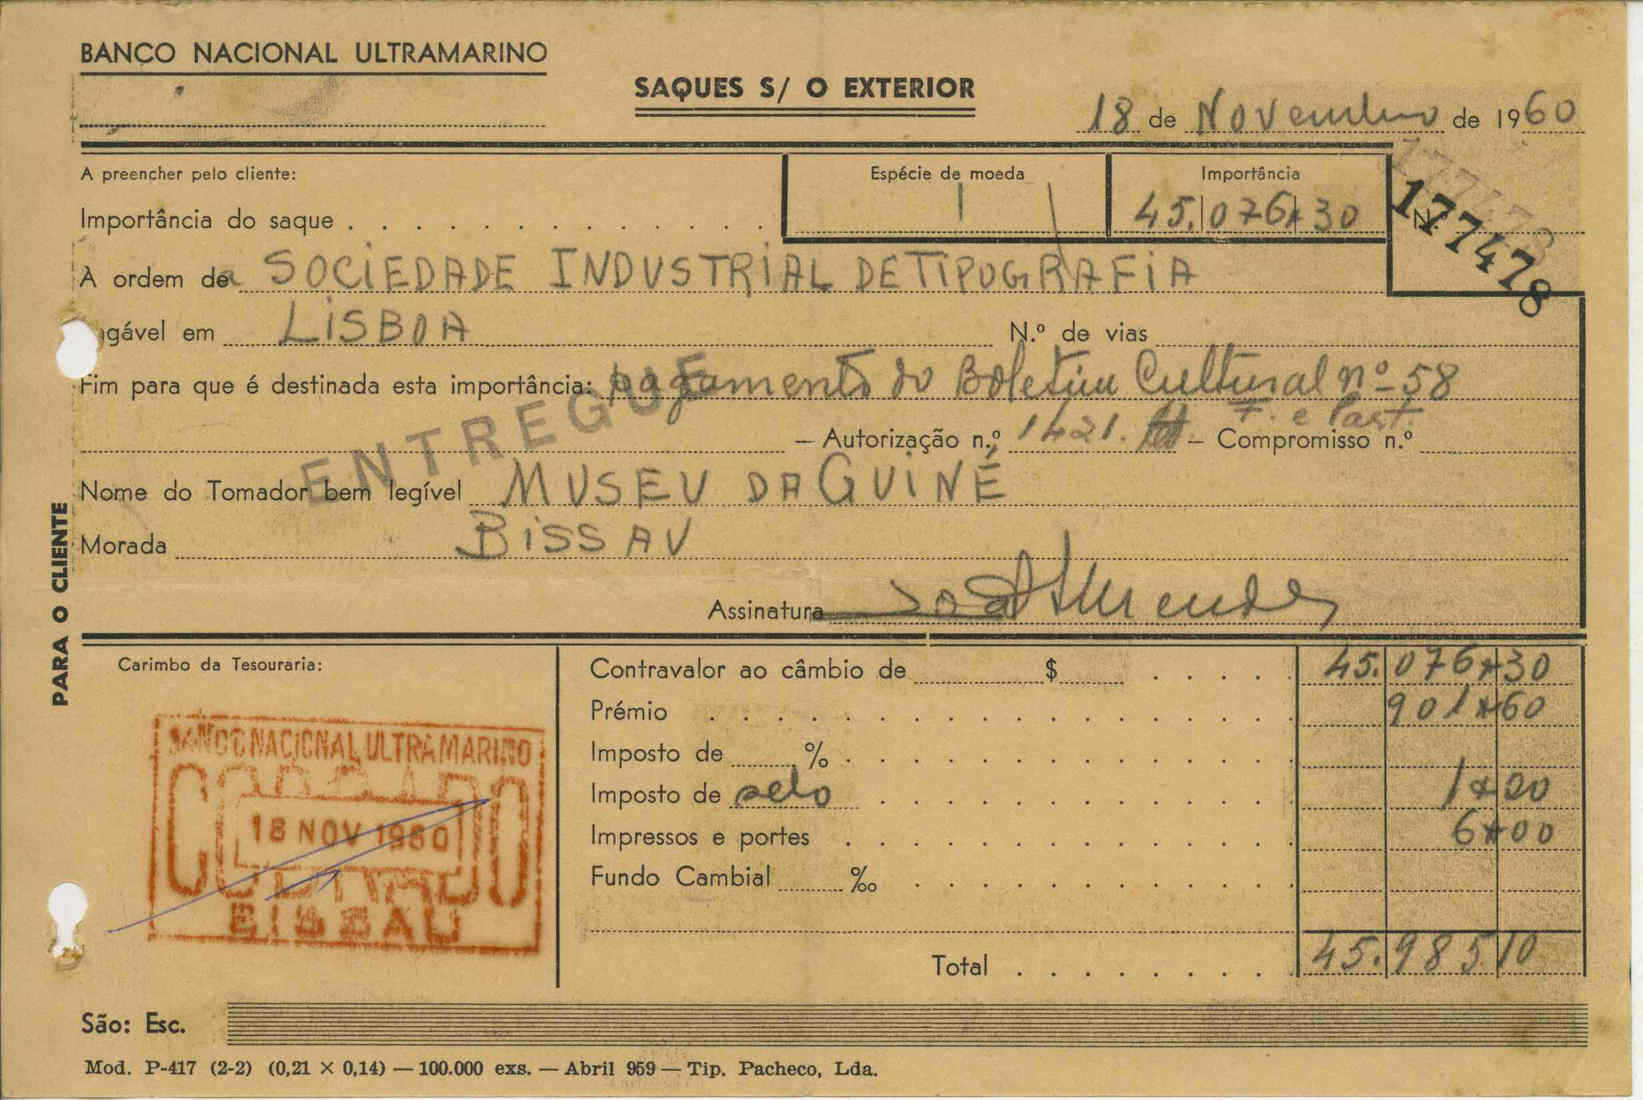 BANCO NACIONAL ULTRAMARINO
SAQUES S/ O EXTERIOR
18 de Novembro de 1960
A preencher pelo cliente:
Espécie de moeda
Importância
177478
Importância do saque . . . . . . . . . . . . . 45.076$30
N.º
À ordem da SOCIEDADE INDUSTRIAL DE TIPOGRAFIA
agável em LISBOA N.º de vias
Fim para que é destinada esta importância: pagamento do Boletim Cultural nº 58
ENTREGUE
F. e Part.
— Autorização n.º 1421. — Compromisso n.º
Nome do Tomador bem legível MUSEU DA GUINÉ
Morada BISSAU
Assinatura
PARA O CLIENTE
Carimbo da Tesouraria:
BANCO NACIONAL ULTRAMARINO
COBRADO
18 NOV 1960
BISSAU
Contravalor ao câmbio de $ . . . . 45.076$30
Prémio . . . . 901$60
Imposto de % . . . .
Imposto de selo . . . . 1$20
Impressos e portes . . . . 6$00
Fundo Cambial ‰ . . . .
Total . . . . 45.985 10
São: Esc.
Mod. P-417 (2-2) (0,21 × 0,14) — 100.000 exs. — Abril 959 — Tip. Pacheco, Lda.